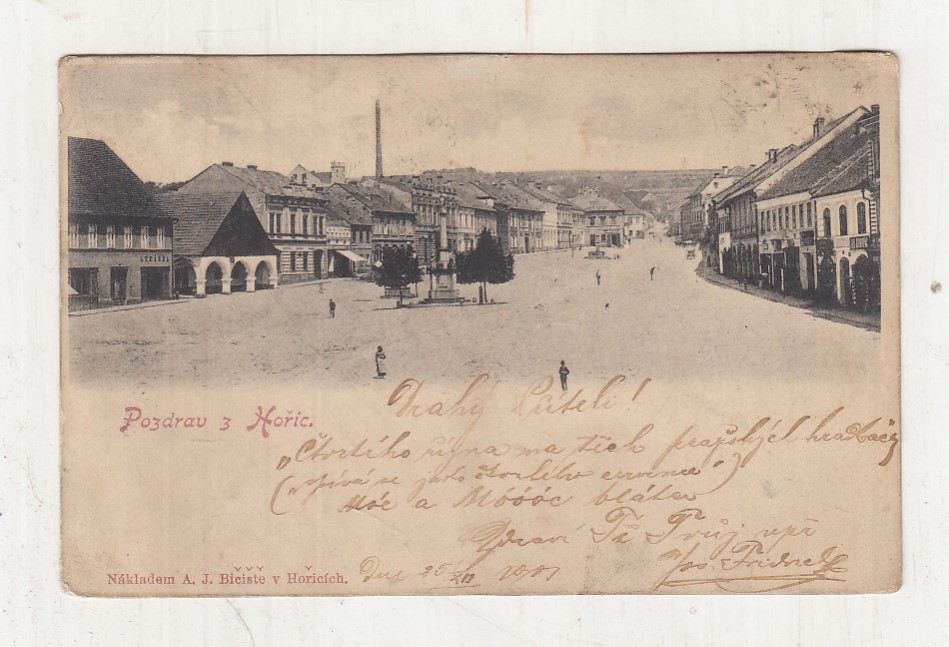 LÉKÁRNA
Pozdrav z Hořic.
Drahý Příteli!
„Čtvrtého října na těch pražských hradbách
(„zpívá se jako čtvrtého července")
Móc a Móóóc bláta
Zdraví Tě Tvůj upř
Jos.
Nákladem A. J. Bičiště v Hořicích.
Dne 25/XII 1901